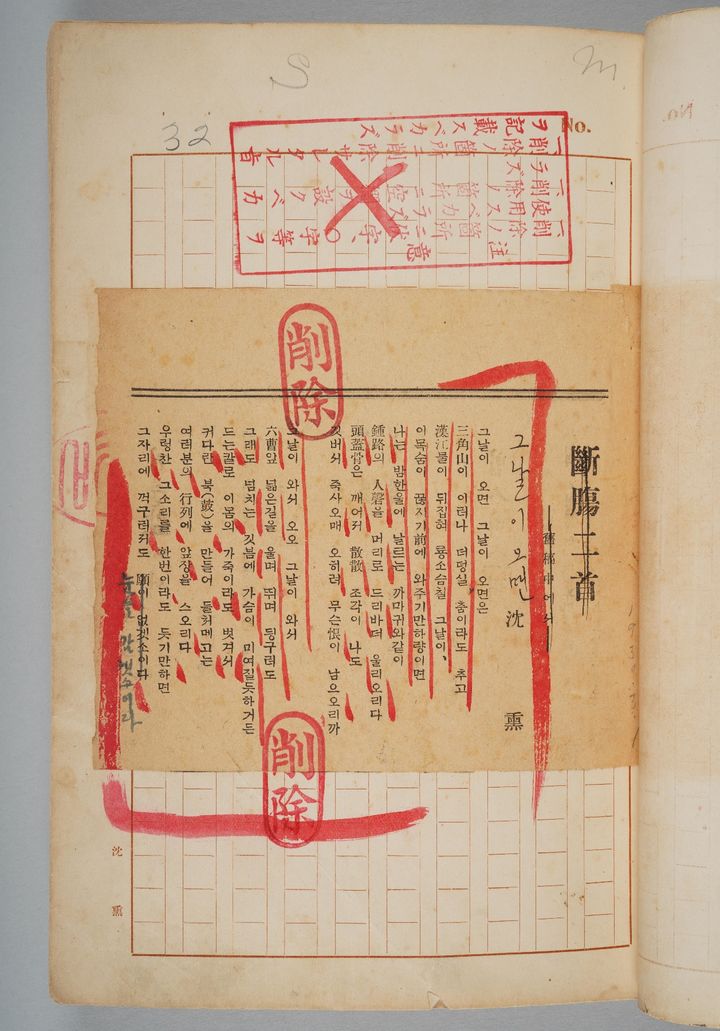 No.
32
S
m
注意
一、削除ノ箇所ニ削除サレタル旨
ヲ記載スベカラズ
斷膓二首
舊稿中에서
그날이 오면
沈 熏
그날이 오면 그날이 오면은
三角山이 이러나 더덩실 춤이라도 추고
漢江물이 뒤집혀 룡소슴칠 그날이,
이목숨이 끊지기前에 와주기만하량이면
나는 밤한울에 날르는 까마귀와같이
鍾路의 人磬을 머리로 드리바더 울리오리다
頭蓋骨은 깨어저 散散 조각이 나도
깃버서 죽사오매 오히려 무슨恨이 남으오리까
그날이 와서 오오 그날이 와서
六曹앞 넓은길을 울며 뛰며 딍구러도
그래도 넘치는 깃븜에 가슴이 미여질듯하거든
드는칼로 이몸의 가죽이라도 벗겨서
커다란 북(鼓)을 만들어 들처메고는
여러분의 行列에 앞장을 스오리다
우렁찬 그소리를 한번이라도 듯기만하면
그자리에 꺽구러저도 願이 없겟소이다
눈을 감겟소이다
削除
削除
沈 熏